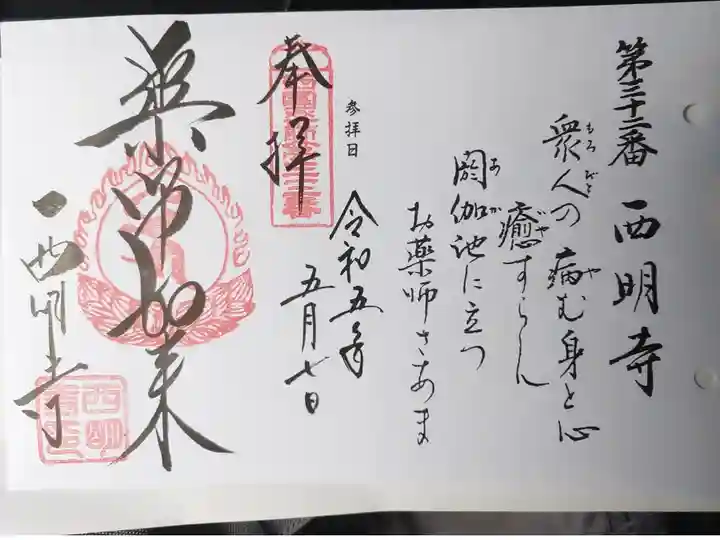 第三十二番 西明寺
衆人の 病む身と心
もろびと や
癒すらん
いや
閼伽池に立つ
あか
お薬師さあま
参拝日
令和五年
五月七日
奉拝
薬師如来
西明寺